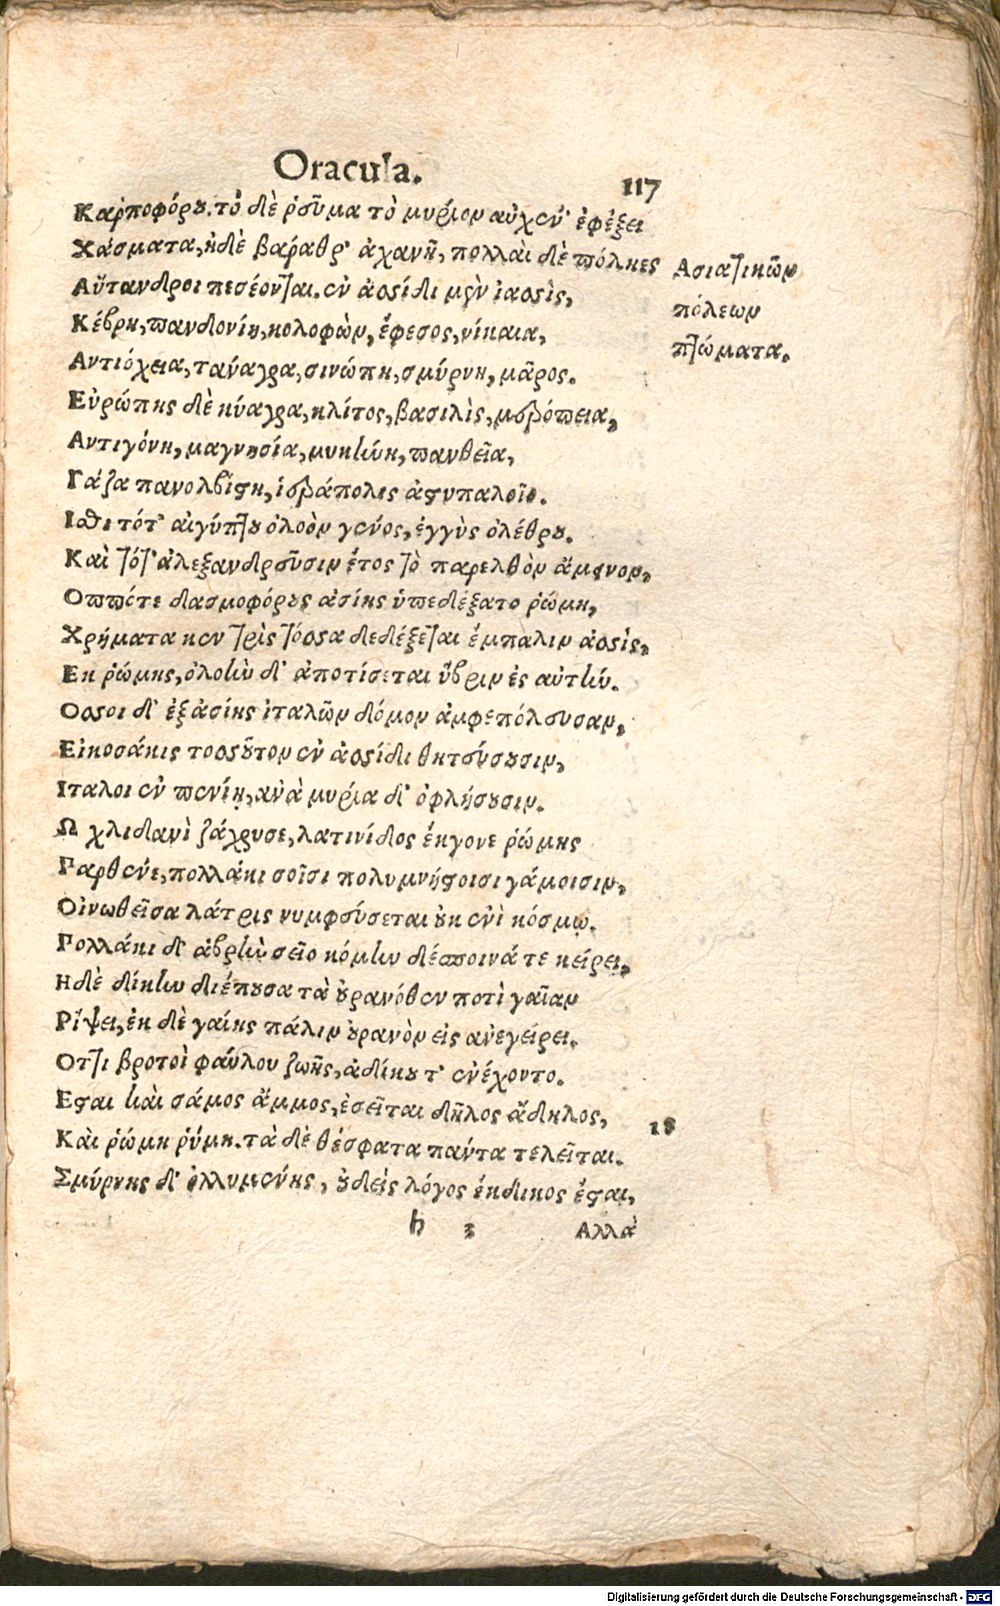 Oracula.
117
Καρποφόρου. τὸ δὲ ῥεῦμα τὸ μυρίον αὐχεν' ἐφέξει
Χάσματα, ἠδὲ βάραθρ' ἀχανῆ, πολλαὶ δὲ πόληες
Αὔτανδροι πεσέονται. ἐν ἀσίδι μὲν ἰασὶς,
Κέβρη, πανδονίη, κολοφὼν, ἔφεσος, νίκαια,
Αντιόχεια, τανάγρα, σινώπη, σμύρνη, μᾶρος.
Εὐρώπης δὲ κύαγρα, κλίτος, βασιλὶς, μερόπεια,
Αντιγόνη, μαγνησία, μυκήνη, πανθεῖα,
Γάζα πανολβίστη, ἱεράπολις ἀστυπαλοῖο.
Ιαθι τότ' αἰγύπτου ὀλοὸν γένος, ἐγγὺς ὀλέθρου.
Καὶ τότ' ἀλεξανδρεῦσιν ἔτος τὸ παρελθὸν ἄμεινον,
Οππότε δασμοφόρους ἀσίης ὑπεδέξατο ῥώμη,
Χρήματα κεν τρὶς τόσσα δεδέξεται ἔμπαλιν ἀσσὶς,
Εκ ῥώμης, ὀλοὴν δ' ἀποτίσεται ὕβριν ἐς αὐτήν.
Οσσοι δ' ἐξ ἀσίης ἰταλῶν δόμον ἀμφεπόλευσαν,
Εἰκοσάκις τοσσοῦτον ἐν ἀσσίδι θητεύσουσιν,
Ιταλοι ἐν πενίῃ, ἀνὰ μυρία δ' ὀφλήσουσιν.
Ω χλιδανὶ ζάχρυσε, λατινίδος ἔκγονε ῥώμης
Παρθένε, πολλάκι σοῖσι πολυμνήστοισι γάμοισιν,
Οἰνωθεῖσα λάτρις νυμφεύσεται οὐκ ἐνὶ κόσμῳ.
Πολλάκι δ' ἁβρὴν σεῖο κόμην δέσποινά τε κείρει,
Ηδὲ δίκην διέπουσα τὰ οὐρανόθεν ποτὶ γαῖαν
Ρίψει, ἐκ δὲ γαίης πάλιν οὐρανὸν εἰς ἀνεγείρει.
Οττι βροτοὶ φαύλου ζωῆς, ἀδίκου τ' ἐνέχοντο.
Εσται καὶ σάμος ἄμμος, ἐσεῖται δῆλος ἄδηλος,
Καὶ ῥώμη ῥύμη. τὰ δὲ θέσφατα πάντα τελεῖται.
Σμύρνης δ' ὀλλυμένης, οὐδεὶς λόγος ἔκδικος ἔσται,
h 3 Αλλὰ
Ασιατικῶν
πόλεων
πτώματα.
18
Digitalisierung gefördert durch die Deutsche Forschungsgemeinschaft - DFG